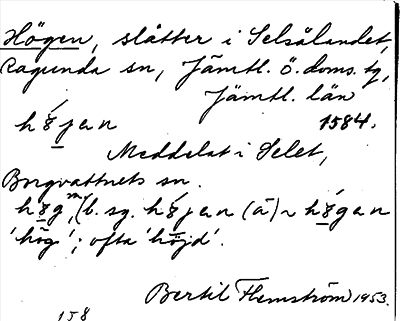 Högen, slåtter i Selsålandet,
Ragunda sn, Jämtl. ö. doms. tg,
Jämtl. län
hǫ́jen 1584.
Meddelat i Selet,
Borgvattnets sn.
hǫg, m (b. sg. hǫ́jen (ä) ~ hǫ́gen
'hög'; ofta 'höjd'.
Bertil Flemström 1953.
158